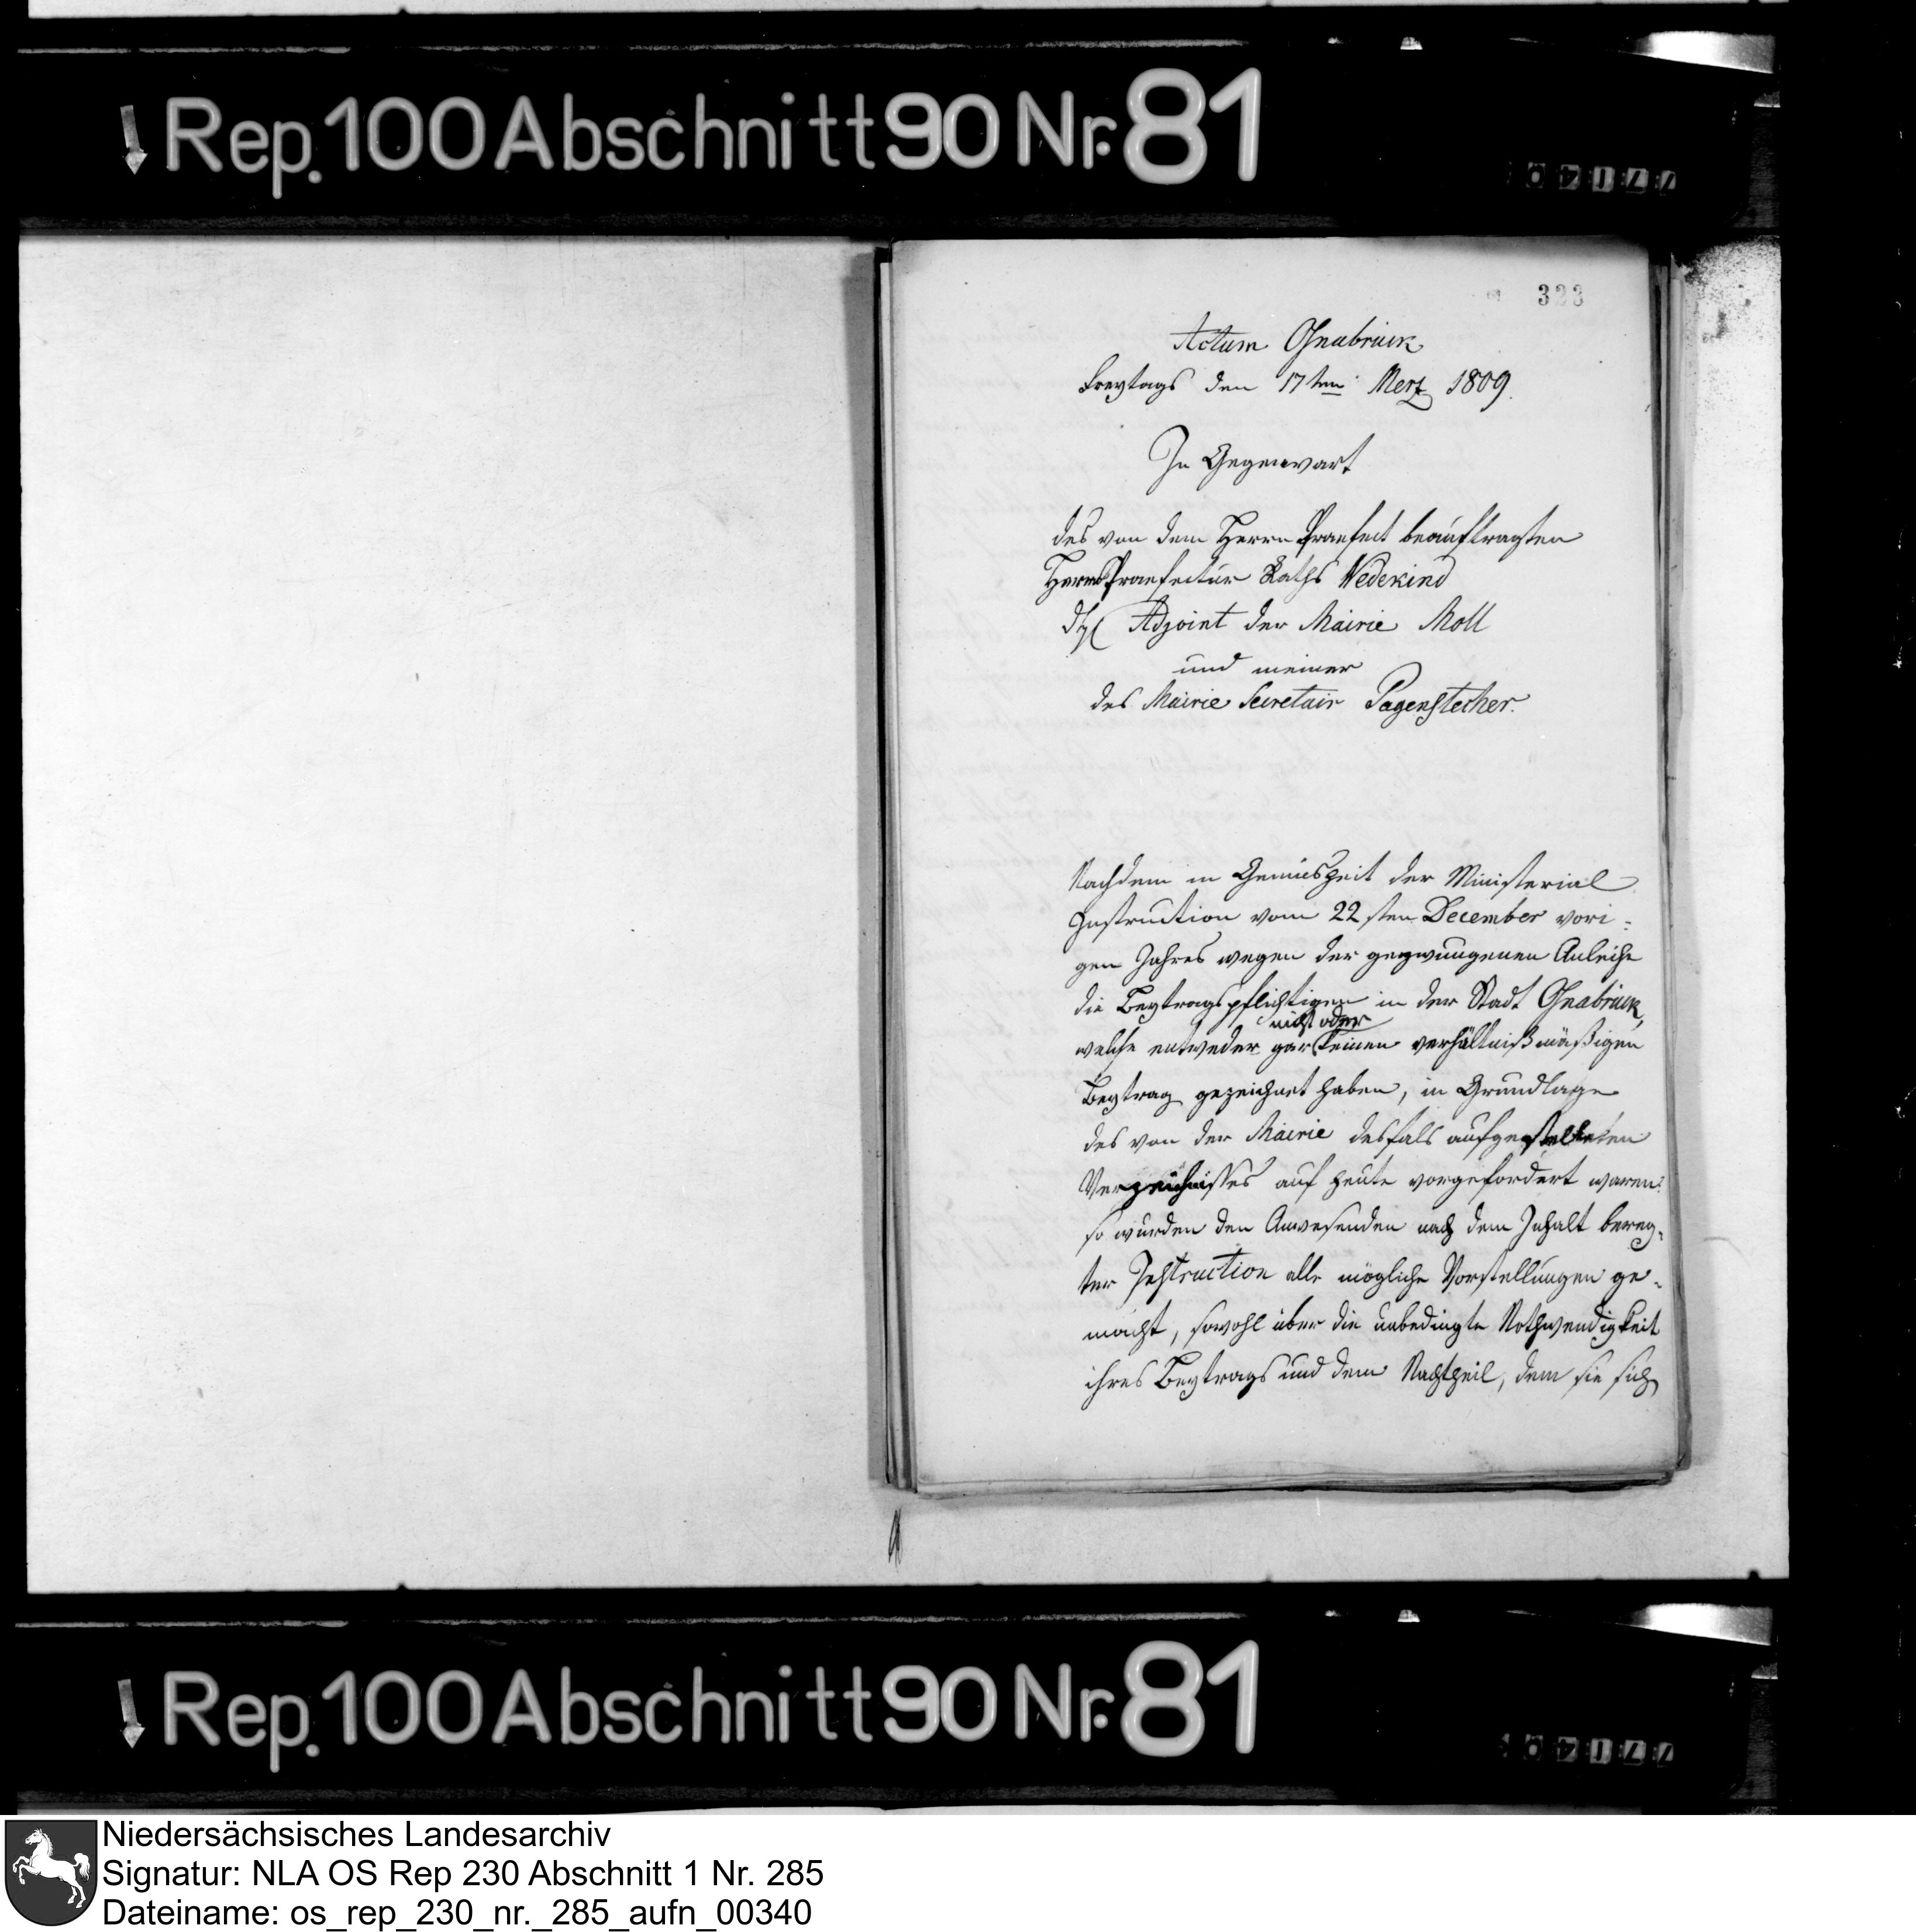 Rep. 100 Abschnitt 90 Nr. 81
323
Actum Osnabrück
Freytags den 17ten Merz 1809.
In Gegenwart
des von dem Herrn Praefect beauftragten
Herrn Praefectur Raths Wedekind
Adjoint der Mairie Moll
und meiner
des Mairie Secretair Pagenstecher.
Nachdem in Gemäsheit der Ministerial
Instruction vom 22sten December vori-
gen Jahres wegen der gezwungenen Anleihe
die Beytragspflichtigen in der Stadt Osnabrück,
nicht oder
welche entweder gar keinen verhältnißmäßigen
Beytrag gezeichnet haben, in Grundlage
des von der Mairie desfals aufgestelleten
Verzeichnisses auf heute vorgefordert waren:
so wurden den Anwesenden nach dem Inhalt bereg-
ter Instruction alle mögliche Vorstellungen ge-
macht, sowohl über die unbedingte Nothwendigkeit
ihres Beytrags und dem Nachtheil, dem sie sich
Rep. 100 Abschnitt 90 Nr. 81
Niedersächsisches Landesarchiv
Signatur: NLA OS Rep 230 Abschnitt 1 Nr. 285
Dateiname: os_rep_230_nr._285_aufn_00340